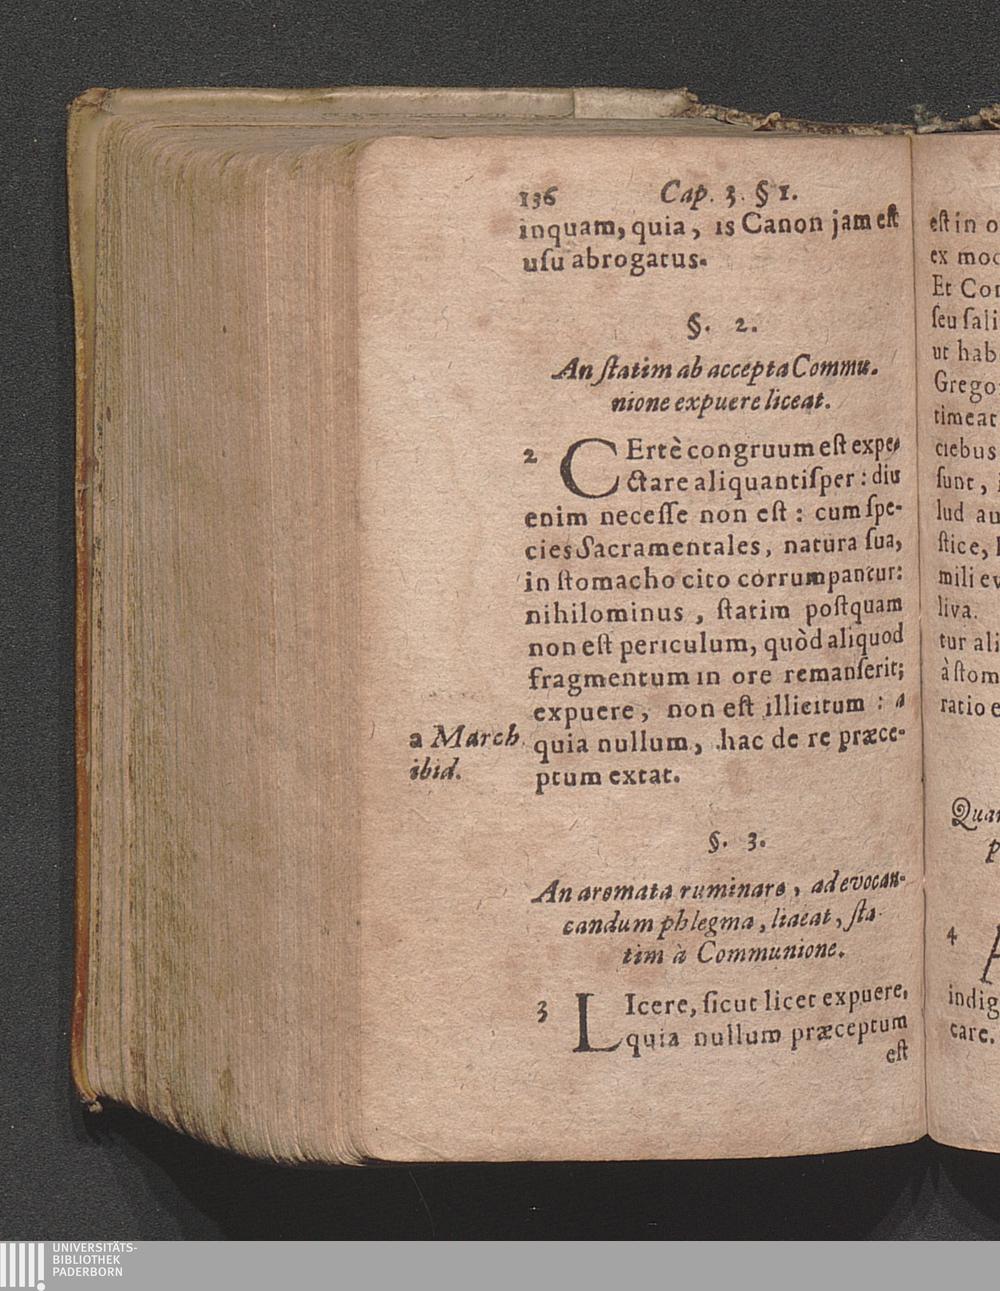 136 Cap. 3. § 1.
inquam, quia, is Canon jam eſt
uſu abrogatus.
§. 2.
An ſtatim ab accepta Commu-
nione expuere liceat.
2 CErtè congruum eſt expe-
ctare aliquantiſper: diu
enim neceſſe non eſt: cum ſpe-
cies Sacramentales, natura ſua,
in ſtomacho cito corrumpantur:
nihilominus, ſtatim poſtquam
non eſt periculum, quòd aliquod
fragmentum in ore remanſerit;
expuere, non eſt illicitum: a
a March. quia nullum, hac de re præce-
ibid. ptum extat.
§. 3.
An aromata ruminare, ad evocan-
candum phlegma, liceat, ſta-
tim à Communione.
3 LIcere, ſicut licet expuere,
quia nullum præceptum
eſt
eſt in o
ex mod
Et Con
ſeu ſali
ut hab
Grego
timeat
ciebus
ſunt,
lud au
ſtice,
mili ev
liva.
tur ali
à ſtom
ratio e
Quan
p
4 A
indig
care.
UNIVERSITÄTS-
BIBLIOTHEK
PADERBORN